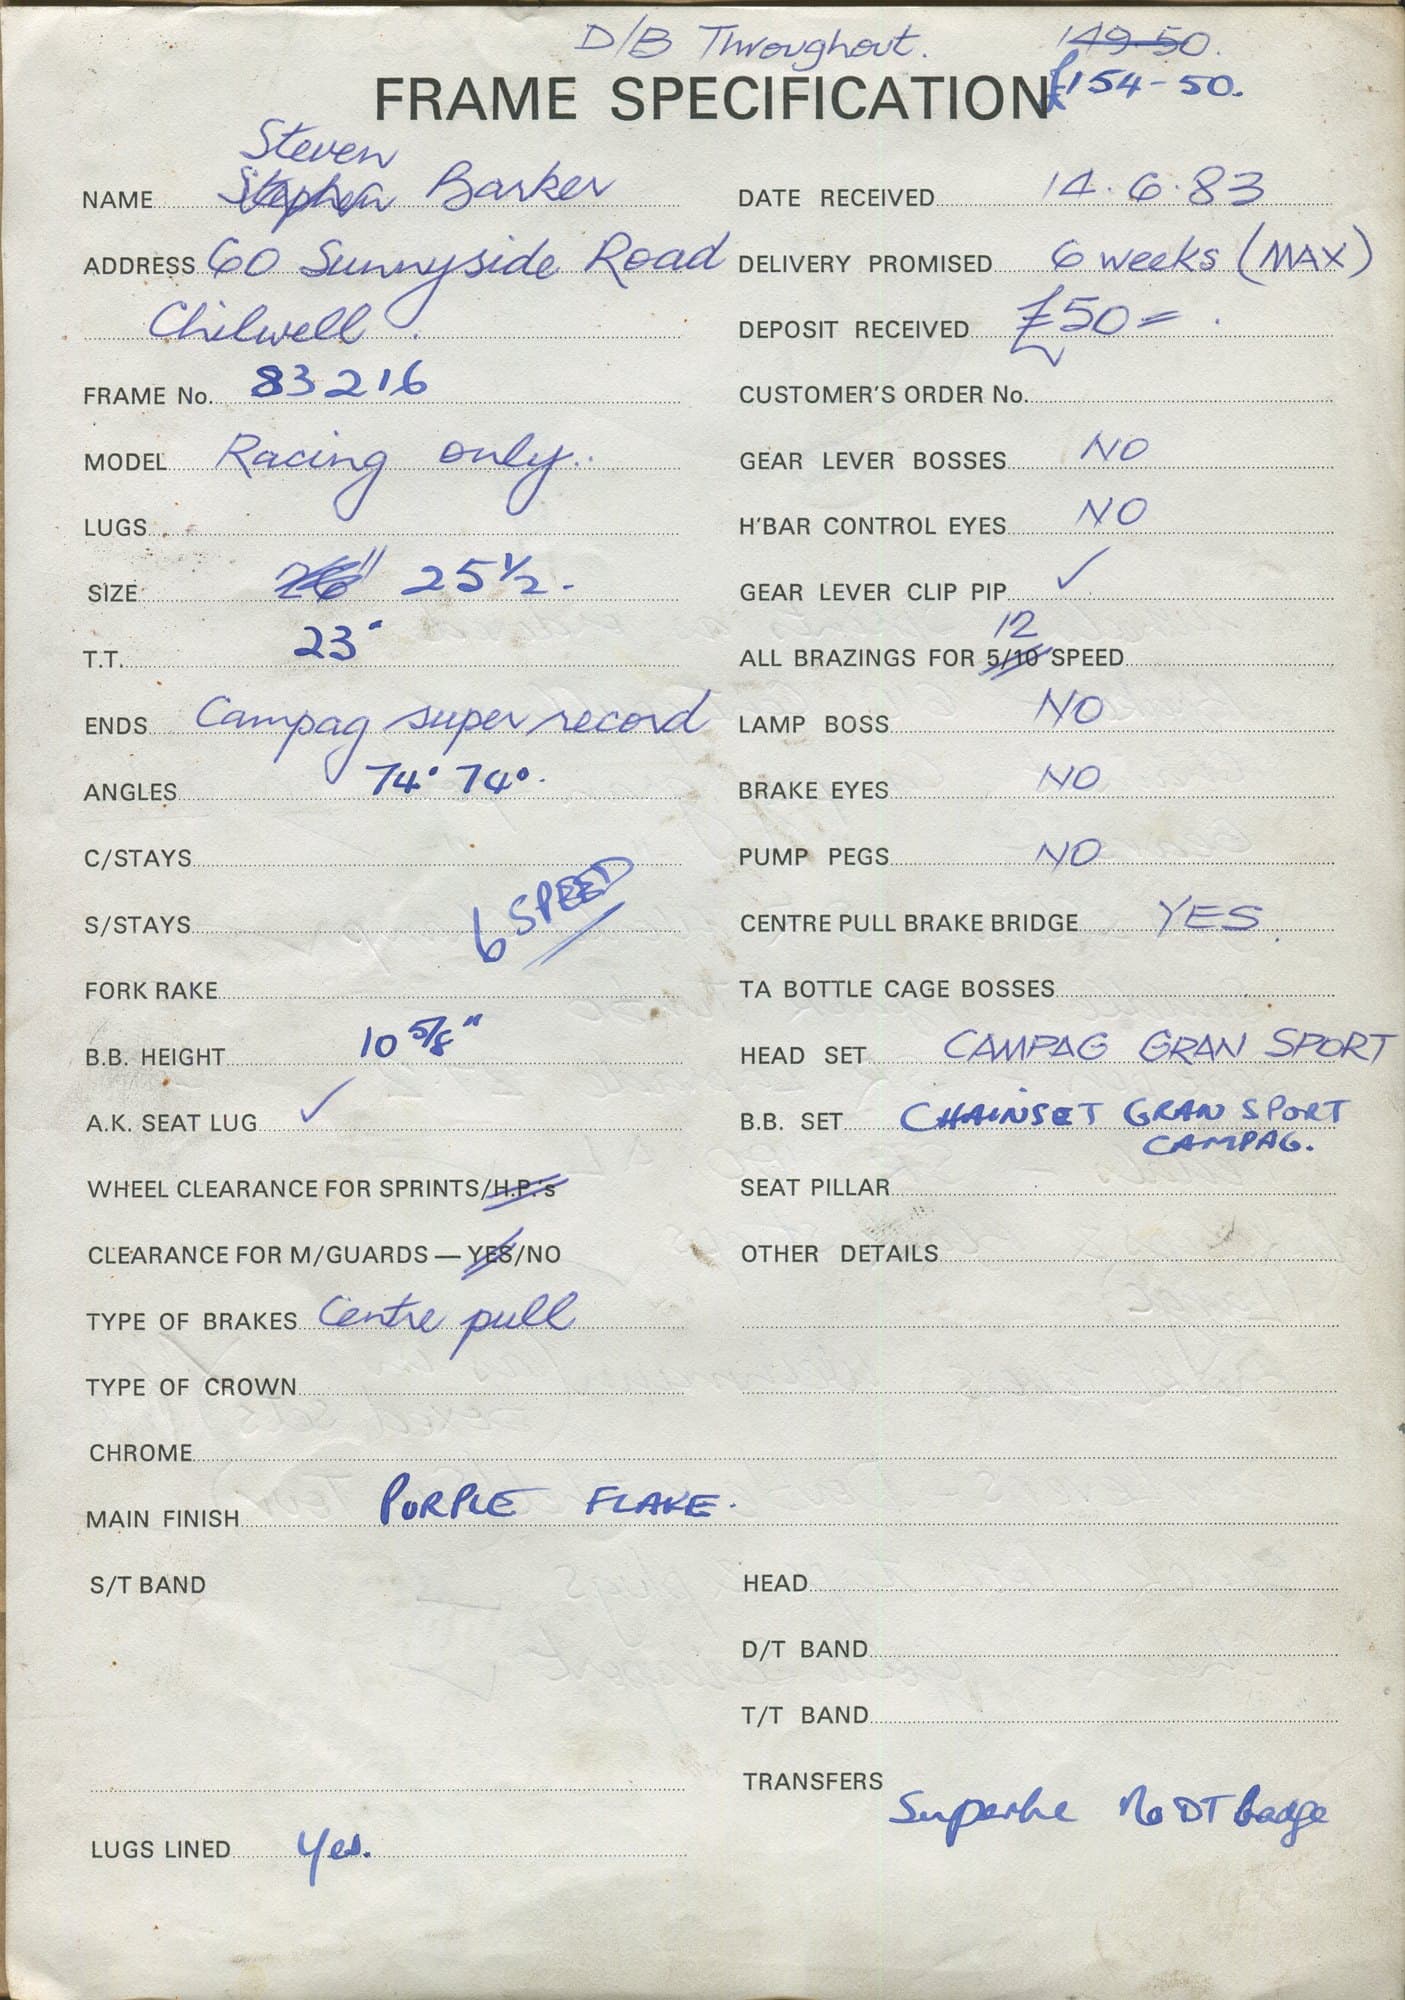 D/B Throughout. 149-50.
FRAME SPECIFICATION £154-50.
Steven
NAME Stephen Barker
ADDRESS 60 Sunnyside Road
Chilwell.
FRAME No. 83216
MODEL Racing only..
LUGS
SIZE 26" 25½.
T.T. 23"
ENDS Campag super record
ANGLES 74° 74°.
C/STAYS
S/STAYS 6 SPEED
FORK RAKE
B.B. HEIGHT 10 5/8"
A.K. SEAT LUG ✓
WHEEL CLEARANCE FOR SPRINTS/H.P.'s
CLEARANCE FOR M/GUARDS — YES/NO
TYPE OF BRAKES Centre pull
TYPE OF CROWN
CHROME
MAIN FINISH PURPLE FLAKE.
S/T BAND
LUGS LINED Yes.
DATE RECEIVED 14.6.83
DELIVERY PROMISED 6 weeks (MAX)
DEPOSIT RECEIVED £50=.
CUSTOMER'S ORDER No.
GEAR LEVER BOSSES NO
H'BAR CONTROL EYES NO
GEAR LEVER CLIP PIP ✓
12
ALL BRAZINGS FOR 5/10 SPEED
LAMP BOSS NO
BRAKE EYES NO
PUMP PEGS NO
CENTRE PULL BRAKE BRIDGE YES.
TA BOTTLE CAGE BOSSES
HEAD SET CAMPAG GRAN SPORT
B.B. SET CHAINSET GRAN SPORT
CAMPAG.
SEAT PILLAR
OTHER DETAILS
HEAD
D/T BAND
T/T BAND
TRANSFERS
Superbe No DT badge